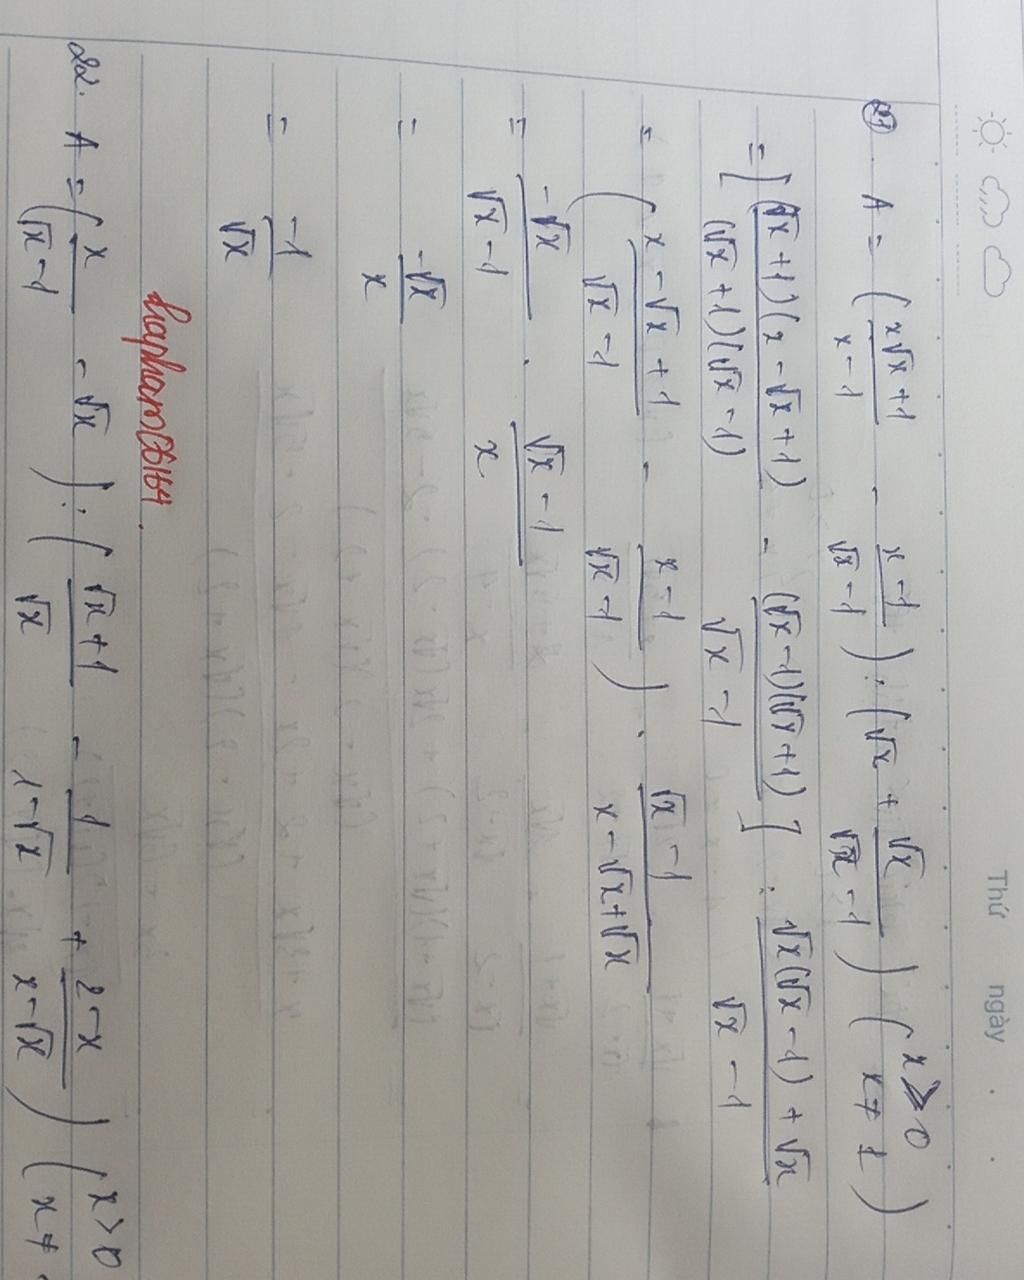 Thứ ngày
21) A = ( (x√x + 1)/(x - 1) - (x - 1)/(√x - 1) ) : ( √x + √x/(√x - 1) ) ( x ≥ 0 x ≠ 1 )
= [ (√x + 1)(x - √x + 1)/(√x + 1)(√x - 1) - (√x - 1)(√x + 1)/(√x - 1) ] : (√x(√x - 1) + √x)/(√x - 1)
= ( (x - √x + 1)/(√x - 1) - (x - 1)/(√x - 1) ) . (√x - 1)/(x - √x + √x)
= (-√x)/(√x - 1) . (√x - 1)/x
= (-√x)/x
= -1/√x
hapham06164.
22. A = ( x/(√x - 1) - √x ) : ( (√x + 1)/√x - 1/(1 - √x) + (2 - x)/(x - √x) ) ( x > 0 x ≠